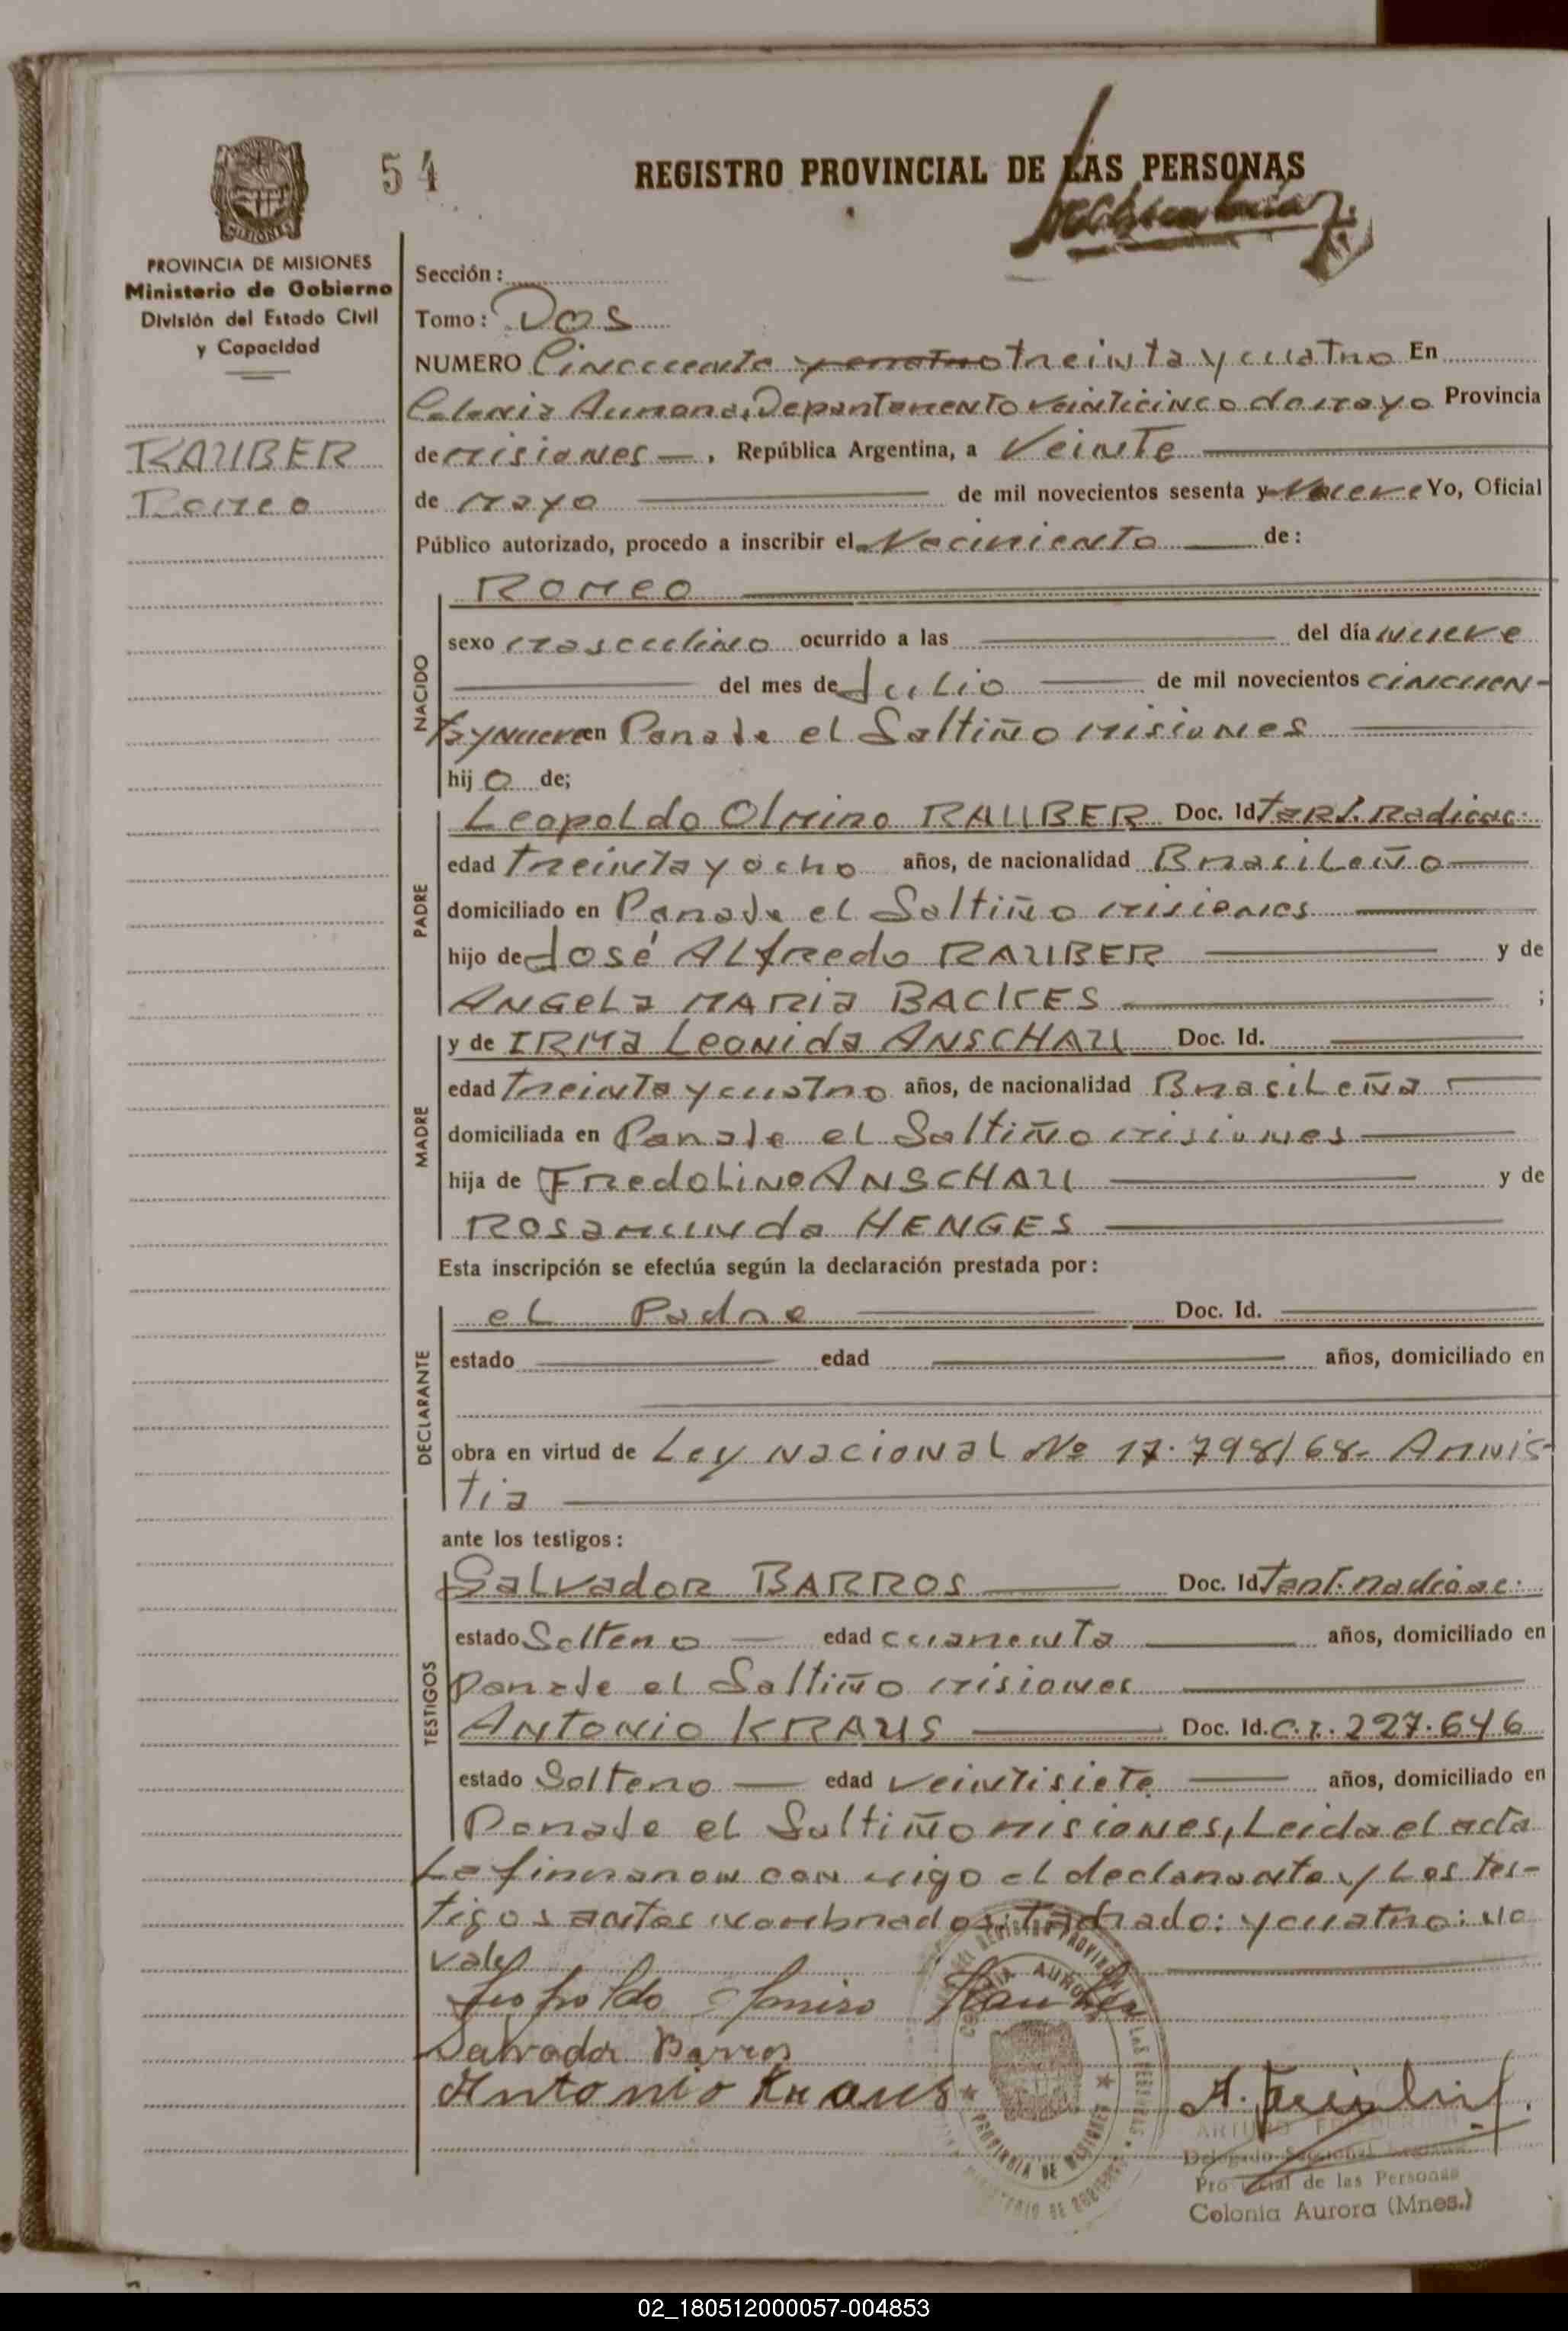 54
REGISTRO PROVINCIAL DE LAS PERSONAS
PROVINCIA DE MISIONES
Ministerio de Gobierno
División del Estado Civil
y Capacidad
RAUBER
Romeo
Sección:
Tomo: Dos
NUMERO Cincuenta y cuatro treinta y cuatro En
Colonia Aurora, Departamento veinticinco de mayo Provincia
de misiones —, República Argentina, a Veinte
de mayo de mil novecientos sesenta y Nueve Yo, Oficial
Público autorizado, procedo a inscribir el Nacimiento de:
NACIDO
Romeo
sexo masculino ocurrido a las del día nueve
del mes de Julio de mil novecientos cincuen-
ta y nueve en Paraje el Saltiño misiones
hijo de;
PADRE
Leopoldo Olmiro RAUBER Doc. Id Tarj. Radicac.
edad treinta y ocho años, de nacionalidad Brasileño
domiciliado en Paraje el Saltiño misiones
hijo de José Alfredo RAUBER y de
ANGela MARia BACKES ;
MADRE
y de IRMa Leonida ANSCHAU Doc. Id.
edad treinta y cuatro años, de nacionalidad Brasileña
domiciliada en Paraje el Saltiño misiones
hija de FredoLino ANSCHAU y de
Rosamunda HENGES
Esta inscripción se efectúa según la declaración prestada por:
DECLARANTE
el Padre Doc. Id.
estado edad años, domiciliado en
obra en virtud de Ley nacional Nº 17.798/68- Amnis-
tia
ante los testigos:
TESTIGOS
Salvador BARROS Doc. Id Tarj. radicac.
estado Soltero — edad cuarenta años, domiciliado en
Paraje el Saltiño misiones
Antonio KRAUS Doc. Id. C.I. 227.646
estado Soltero — edad veintisiete años, domiciliado en
Paraje el Saltiño misiones, Leida el acta
La firmaron con migo el declarante y Los tes-
tigos antes nombrados; Tachado: y cuatro: no
vale
Leopoldo Olmiro Rauber
Salvador Barros
Antonio Kraus
COLONIA AURORA
PROVINCIA DE MISIONES
Delegado Seccional
Provincial de las Personas
Colonia Aurora (Mnes.)
02_180512000057-004853